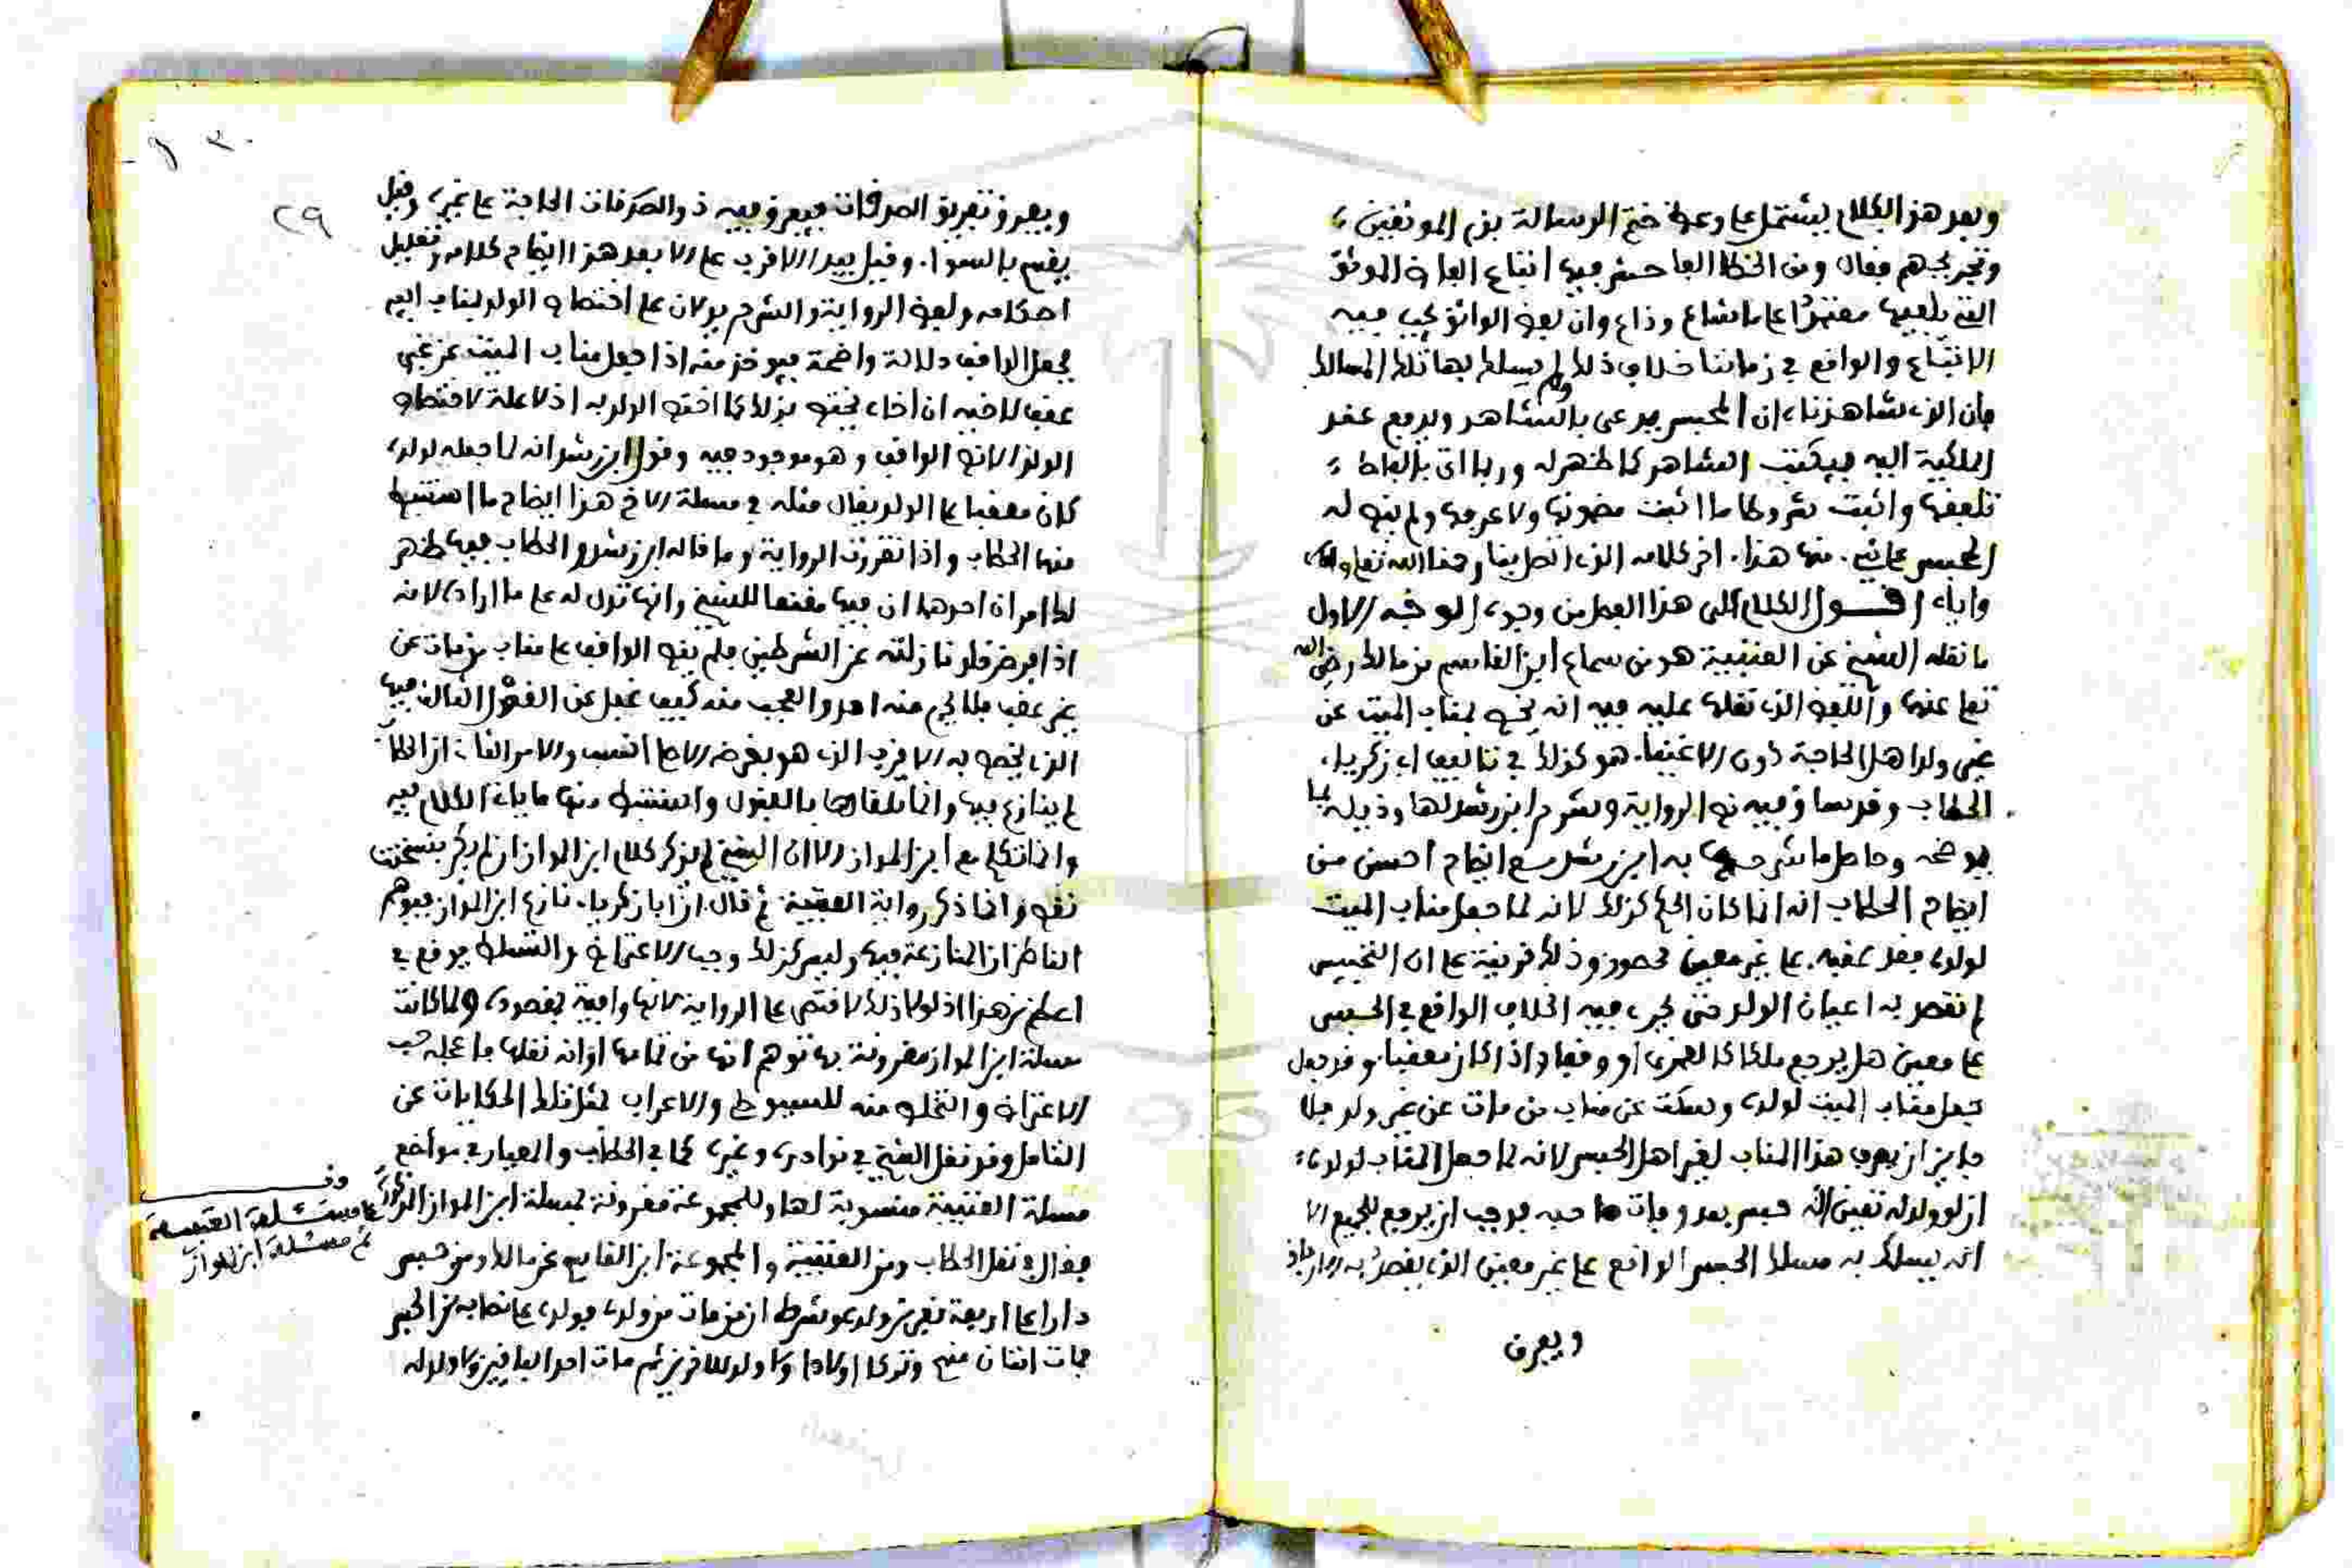 وبعد هذا الكلام يشتمل على وعظ ختم الرسالة بذم الموثقين
وتجريحهم فقال ومن الخطا الفاحش فيها اتباع الفاظ الموثق
التي تلقيها مقتصرا على ما شاع وذاع وان لفظ الواثق يجب فيه
الاتباع والواقع في زماننا خلاف ذلك ولم يسلك بها تلك المسالك
فان الذي شاهدناه ان المحبس يدعى بالشاهد ويدفع عقد
الملكية اليه فيكتب الشاهد كما ظهر له وربما اتى بالفاظ
تلقفها واثبت شروطا ما اثبت مضمونها ولا عرفها ولم ينص له
المحبس على شيء منها هذا اخر كلامه الذي اتصل بنا رحمنا الله تعالى
واياه اقول الكلام على هذا الفصل من وجوه الوجه الاول
ما نقله الشيخ عن العتبية هو من سماع ابن القاسم من مالك رضي الله
تعالى عنهما واللفظ الذي نقلها عليه فيه انه يخص بمناب الميت عن
غير ولد اهل الحاجة دون الاغنياء هو كذلك في تاليف ابي زكرياء
الحطاب وقد ساق فيه نص الرواية وشرح ابن رشد لها وذيله بما
يوضحه وحاصل ما شرحها به ابن رشد مع ايضاح احسن من
ايضاح الحطاب انه انما كان الحكم كذلك لانه لما جعل مناب الميت
لولده فقد عقبه على غير معين محصور وذلك قرينة على ان التحبيس
لم يقصد به اعيان الولد حتى يجري فيه الخلاف الواقع في الحبس
على معين هل يرجع ملكا كالعمرى او وقفا واذا كان معقبا وقد جعل
مناب الميت لولده وسكت عن مناب من مات عن غير ولد فلا
جايز ان يصرف هذا المناب لغير اهل الحبس لانه لما جعل المناب لولده
ان لو ولد له تعين انه حبس بعد وفات صاحبه فوجب ان يرجع للجميع الا
انه يسلك به مسلك الحبس الواقع على غير معين الذي يقصد به
ويعرف
٢٩
ويصرف تفريق الصدقات فيعرف فيه ذوالصدقات الحاجة على غيره وقيل
يقسم بالسواء وقيل يبدا الاقرب على الابعد هذا ايضاح كلامه وتعليل
احكامه ولفظ الرواية والشرح يدلان على اختصاص الولد بمناب ابيه
يجعل الواقف دلالة واضحة فيوخذ منه اذا جعل مناب الميت عن غير
عقب لاخيه ان اخاه يختص بذلك كما اختص الولد به اذ لا علة لاختصاص
الولد الا نص الواقف وهو موجود فيه وقول ابن رشد انه لما جعله لولده
كان معقبا على الولد يقال مثله في مسلة الاخ هذا ايضاح ما استنبط
منها الحطاب واذا تقررت الرواية وما قاله ابن رشد والحطاب فيها ظهر
لك امران احدهما ان فيها مقنعا للشيخ وانها تدل له على ما اراد لانه
اذا فرض خلو نازلته عن الشرطين فلم ينص الواقف على مناب من مات عن
غير عقب والعجب منه كيف غفل عن القول الثالث فيها
الذي يخص به الاقرب الذي هو بغرضه انسب والامر الثاني ان الحطاب
لم ينازع فيها وانما تلقاها بالقبول واستنبط منها ما ياتي الكلام فيه
وانما تكلم مع ابن المواز الا ان الشيخ لم يذكر كلام ابن المواز
نصه وانما ذكر رواية العتبية ثم قال ان ابا زكرياء نازع ابن المواز فيوهم
الناظر ان المنازعة فيها وليس كذلك وجب الاعتراض والتسلط يوقع في
اعظم من هذا اذ لولا ذلك لاقتصر على الرواية لانها وافية بمقصوده ولما كانت
مسلة ابن المواز مقرونة بها توهم انها من تمامها او انه نقلها
الاعتراض والتخلص منه للسيوط والاعراب لمثل تلك الحكايات عن
الناقل وقد نقل الشيخ في نوادره وغيره كما في الحطاب والمعيار في مواضع
مسلة العتبية منسوبة لها وللمجموعة مقرونة بمسلة ابن المواز
فقال في نقل الحطاب ومن العتبية والمجموعة ابن القاسم عن مالك ومن حبس
دارا على اربعة نفر من ولده وشرط ان من مات من ولده فولده على نصابه من الحبس
فمات اثنان منهم وتركا اولادا ثم مات احد الباقيين ولا ولد له
وقف
على مسئلة العتبية
ثم مسئلة ابن المواز